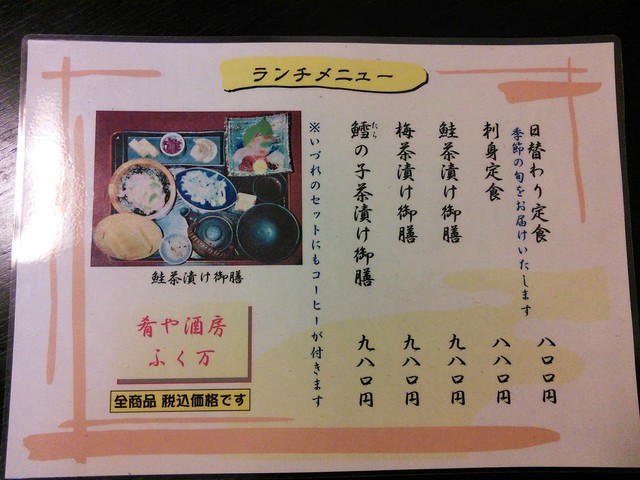 ランチメニュー
日替わり定食 八〇〇円
季節の旬をお届けいたします
刺身定食 八八〇円
鮭茶漬け御膳 九八〇円
梅茶漬け御膳 九八〇円
鱈の子茶漬け御膳 九八〇円
たら
※いづれのセットにもコーヒーが付きます
鮭茶漬け御膳
肴や酒房
ふく万
全商品 税込価格です